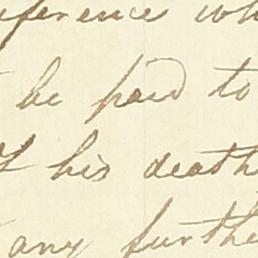 ference wh
be paid to
his death
any further